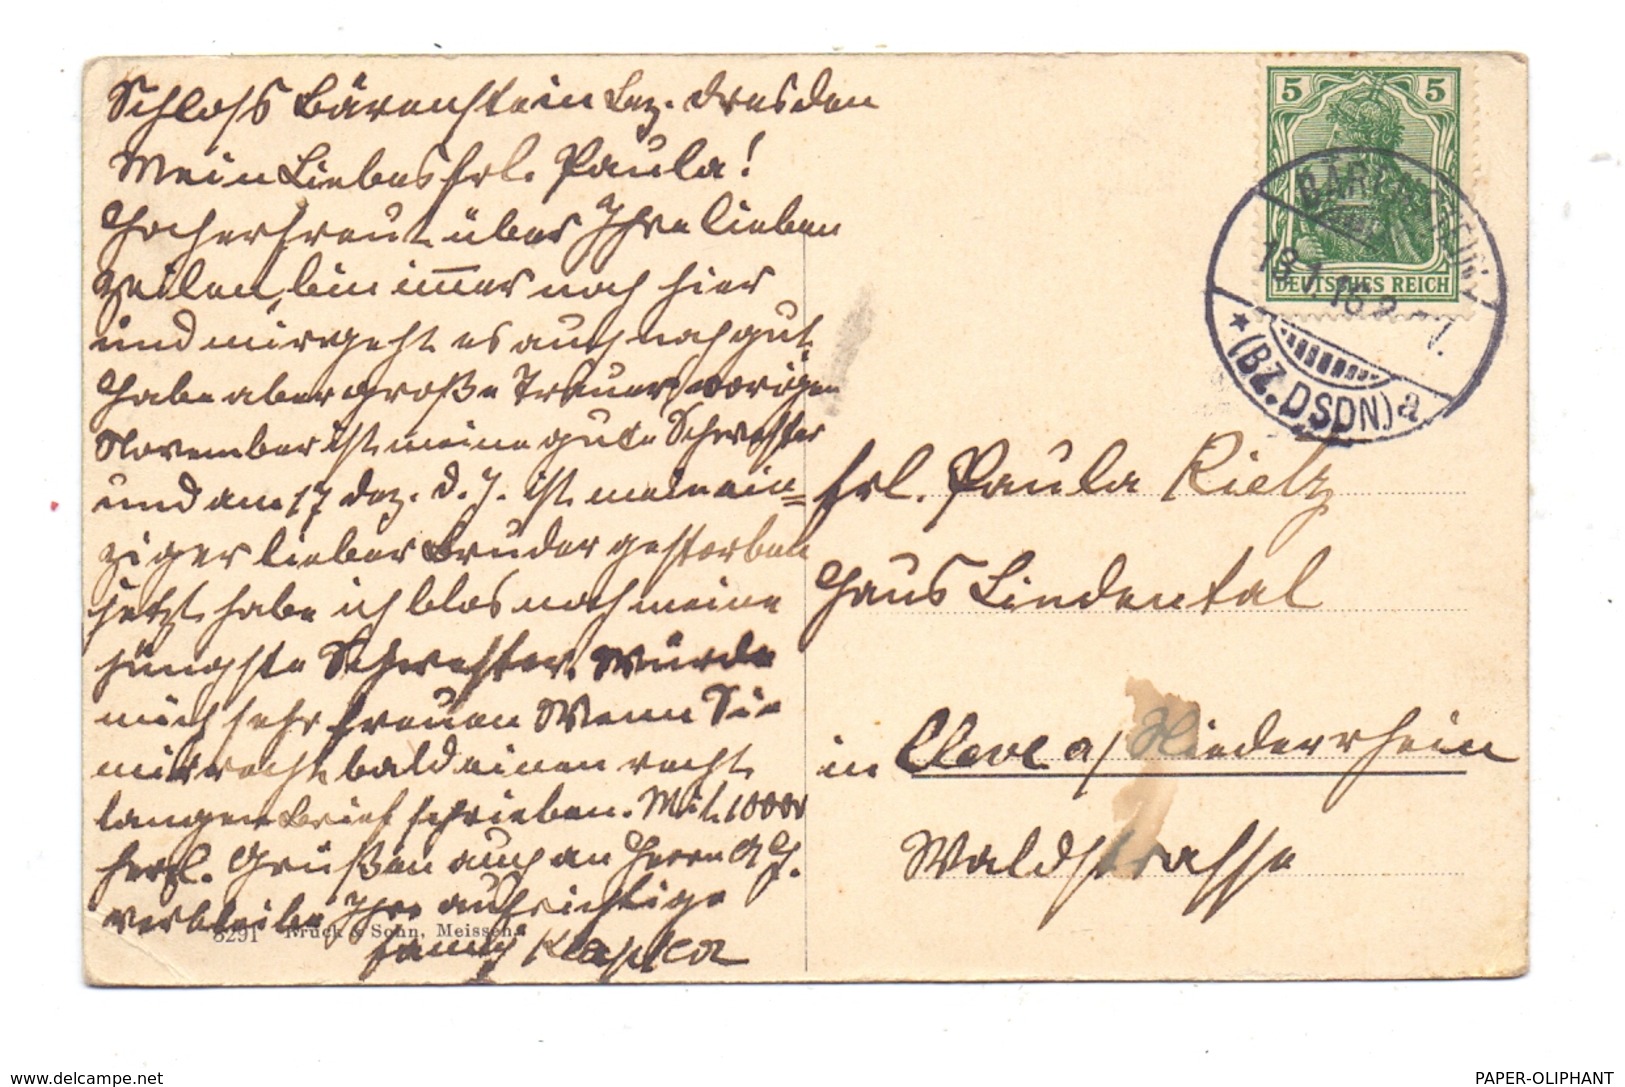 Schloss Bärenstein Bez. Dresden
Mein Liebes Frl. Paula!
Hocherfreut über Ihre lieben
Zeilen, bin immer noch hier
und mir geht es auch noch gut
Habe aber große Trauer, vorigen
November ist meine gute Schwester
und am 17 Dez. d. J. ist mein ein=
ziger lieber Bruder gestorben
jetzt habe ich blos noch meine
jüngste Schwester. Würde
mich sehr freuen Wenn Sie
mir recht bald einen recht
langen Brief schrieben. Mit 1000
herzl. Grüßen auch an Herrn
verbleibe Ihre aufrichtige
Fanny
8291 Brück & Sohn, Meissen.
5 5
DEUTSCHES REICH
BÄRENSTEIN
13.1.16
* (BZ. DSDN) a
Frl. Paula
Haus Lindental
in Cleve a/Niederrhein
Waldstrasse
www.delcampe.net
PAPER-OLIPHANT